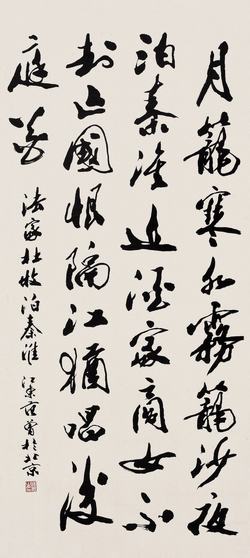 月籠寒水霧籠沙夜
泊秦淮近酒家商女不
知亡國恨隔江猶唱後
庭花
法家杜牧泊秦淮 江東范曾於北京